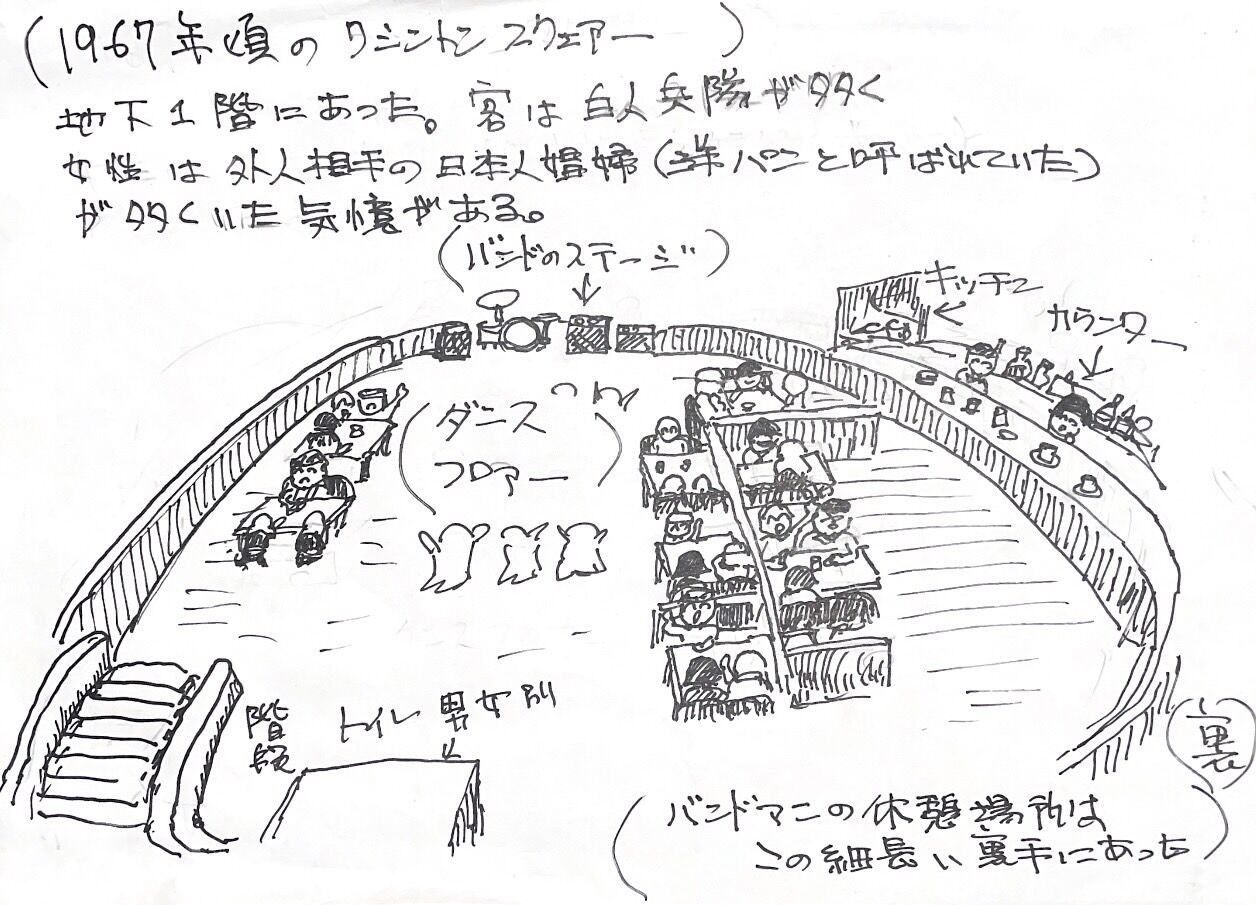 (1967年頃のワシントンスクェアー)
地下1階にあった。客は白人兵隊が多く
女性は外人相手の日本人娼婦(洋パンと呼ばれていた)
が多くいた気憶がある。
(バンドのステージ)
キッチン
カウンター
(ダンス
フロアー)
階段
トイレ 男女別
(裏)
(バンドマンの休憩場所は
この細長い裏手にあった)